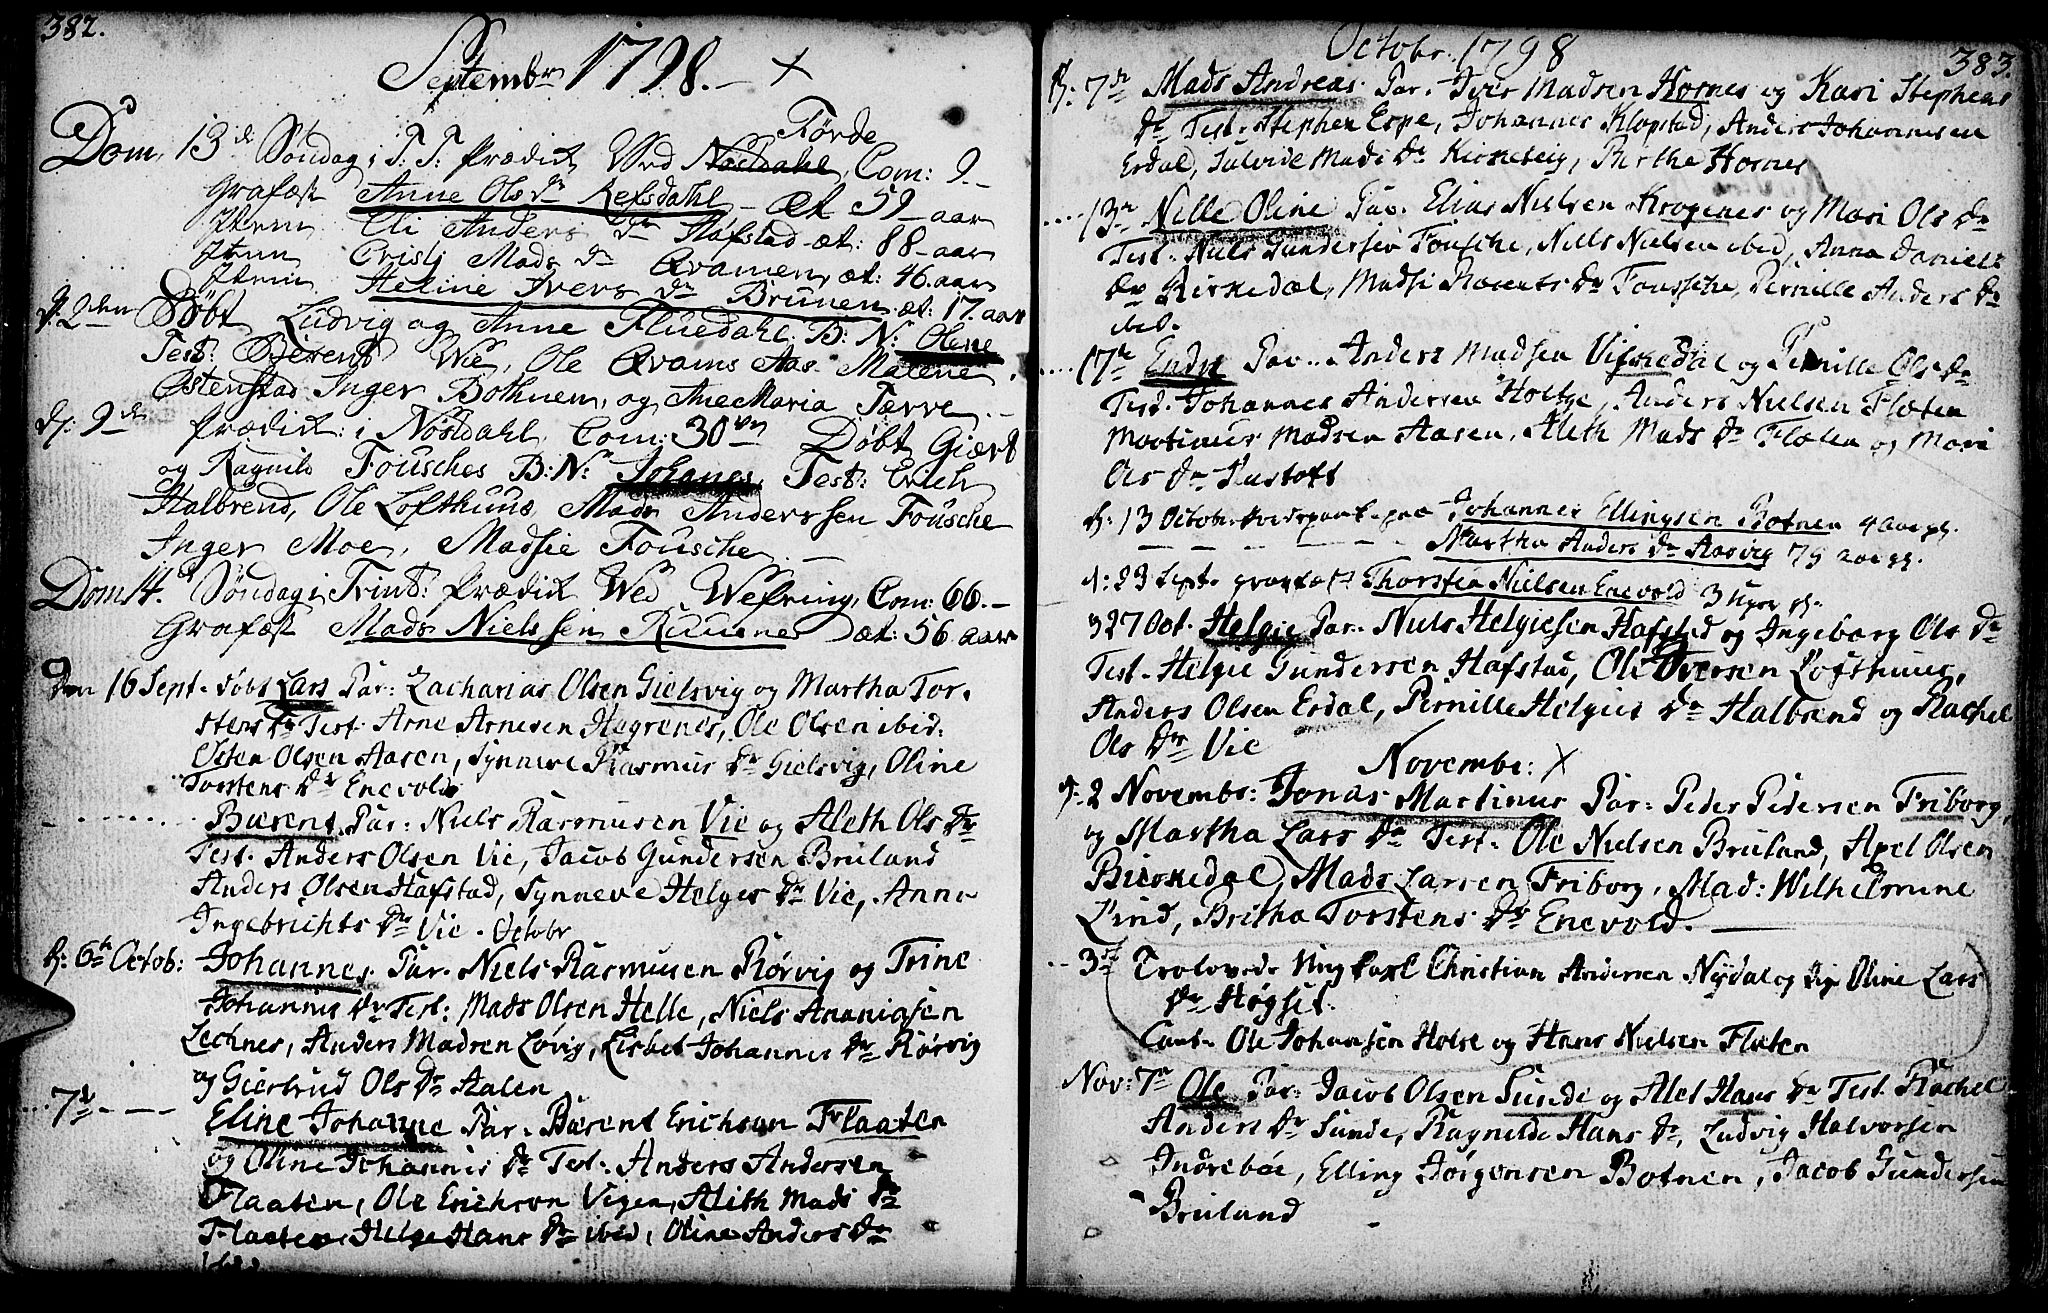 382.
Septembr 1798. - X
Förde
Dom, 13de Söndag i T. T. Prædik Wed Nöstdahl, Com: 9. -
Grafæst Anne Ols dr Refsdahl - æt 59 - aar
Item Eli Anders dr Hafstad - æt: 88 - aar
Item Cristi Mads dr Qvamen, æt: 46. aar
Item Heline Ivers dr Brunen æt: 17. aar
d. 2den Döbt Ludvig og Anne Fluedahl B: N: Olene
Test: Berent Wie, Ole Qvams Aas Malene
Ostenstad Inger Bothnem, og Ane Maria Tærve. -
d: 9de Prædik: i Nöstdahl, Com: 30 Döbt Giært
og Ragnild Fousches B: N: Johanes Test: Erich
Halbrend, Ole Lofthuus, Mads Anderssen Fousche
Inger Moe, Madsie Fousche -
Dom 14. Söndag i Trint: Prædik Wed Wefring, Com: 66. -
Grafæst Mads Nielssen Ruusne æt: 56 aar
Den 16 Sept. döbt Lars Par: Zacharias Olsen Gielsvig og Martha Tor-
stens dr Test. Arne Arnesen Hegrenes, Ole Olsen ibid:
Osten Olsen Aasen, Synneve Rasmus dr Gielsvig, Oline
Torstens dr Enevold
Bærent Par: Niels Rasmusen Vie og Aleth Ols dr
Test. Anders Olsen Vie, Jacob Gundersen Bruland
Anders Olsen Hafstad, Synneve Helges dr Vie, Anne
Ingebrichts dr Vie. Octobr
d: 6te Octob: Johannes. Par. Niels Rasmusen Rörvig og Trine
Johannis dr Test: Mads Olsen Helle, Niels Ananiasen
Lechnes, Anders Madsen Lövig, Lisbet Johannes dr Rörvig
og Giertrud Ols dr Aalen
... 7de - - - Eline Johanne Par. Bærent Erichsen Flaaten
og Oline Johannis dr Test. Anders Andersen
Flaaten, Ole Erichsen Vigen, Aleth Mads dr
Flaaten, Helge Hans dr ibid, Oline Anders dr
ibid
Octobr. 1798
383.
d: 7de Mads Andreas. Par. Iver Madsen Hornes og Kari Stephens
dr Test. Stephen Espe, Johannes Klopstad, Anders Johannesen
Erdal, Sulvide Mads dr Kirketeig, Birthe Hornes
.... 13de Nille Oline Par. Elias Nielsen Krogenes og Mari Ols dr
Test. Niels Gundersen Fousche, Niels Nielsen ibid, Anna Daniels
dr Birkedal, Madsi Bærents dr Foussche, Pernille Anders dr
ibid.
.... 17de Endre Par.. Anders Madsen Vifnedal og Pernille Ols dr
Test. Johannes Andersen Holtze, Anders Nielsen Flaten
Mortinus Madsen Aasen, Aleth Mads dr Flaten og Mari
Ols dr Rustøft
d: 13 Octobr. jordspart. paa Johannes Ellingsen Botnen 4 aar gl.
Martha Anders dr Aasvig 75 aar gl.
d: 23 Sept. grafæst Thorsten Nielsen Enevold 3 Uger gl.
d 27 Oct. Helgie Par. Niels Helgiesen Hafstad og Ingeborg Ols dr
Test. Helgie Gundersen Hafstad, Ole Iversen Lofthuus,
Anders Olsen Erdal, Pernille Helgies dr Halbrend og Rachel
Ols dr Vie
Novembr: X
d: 2 Novembr: Jonas Martinus Par: Peder Pedersen Friborg,
og Martha Lars dr Test. Ole Nielsen Bruland, Axel Olsen
Bierkedal, Mads Larsen Friborg, Mad: Wilhelmine
Lind, Britha Torstens dr Enevold. -
.. 3die Trolovede Ung karl Christian Andersen Nydal og Pige Oline Lars
dr Høgset.
Caut. Ole Johansen Holse og Hans Nielsen Flaten
Nov: 7de Ole Par: Jacob Olsen Sunde og Alet Hans dr Test. Rachel
Anders dr Sunde, Ragnilde Hans dr, Ludvig Halvorsen
Indrebøe, Elling Jörgensen Botnen, Jacob Gundersen
Bruland